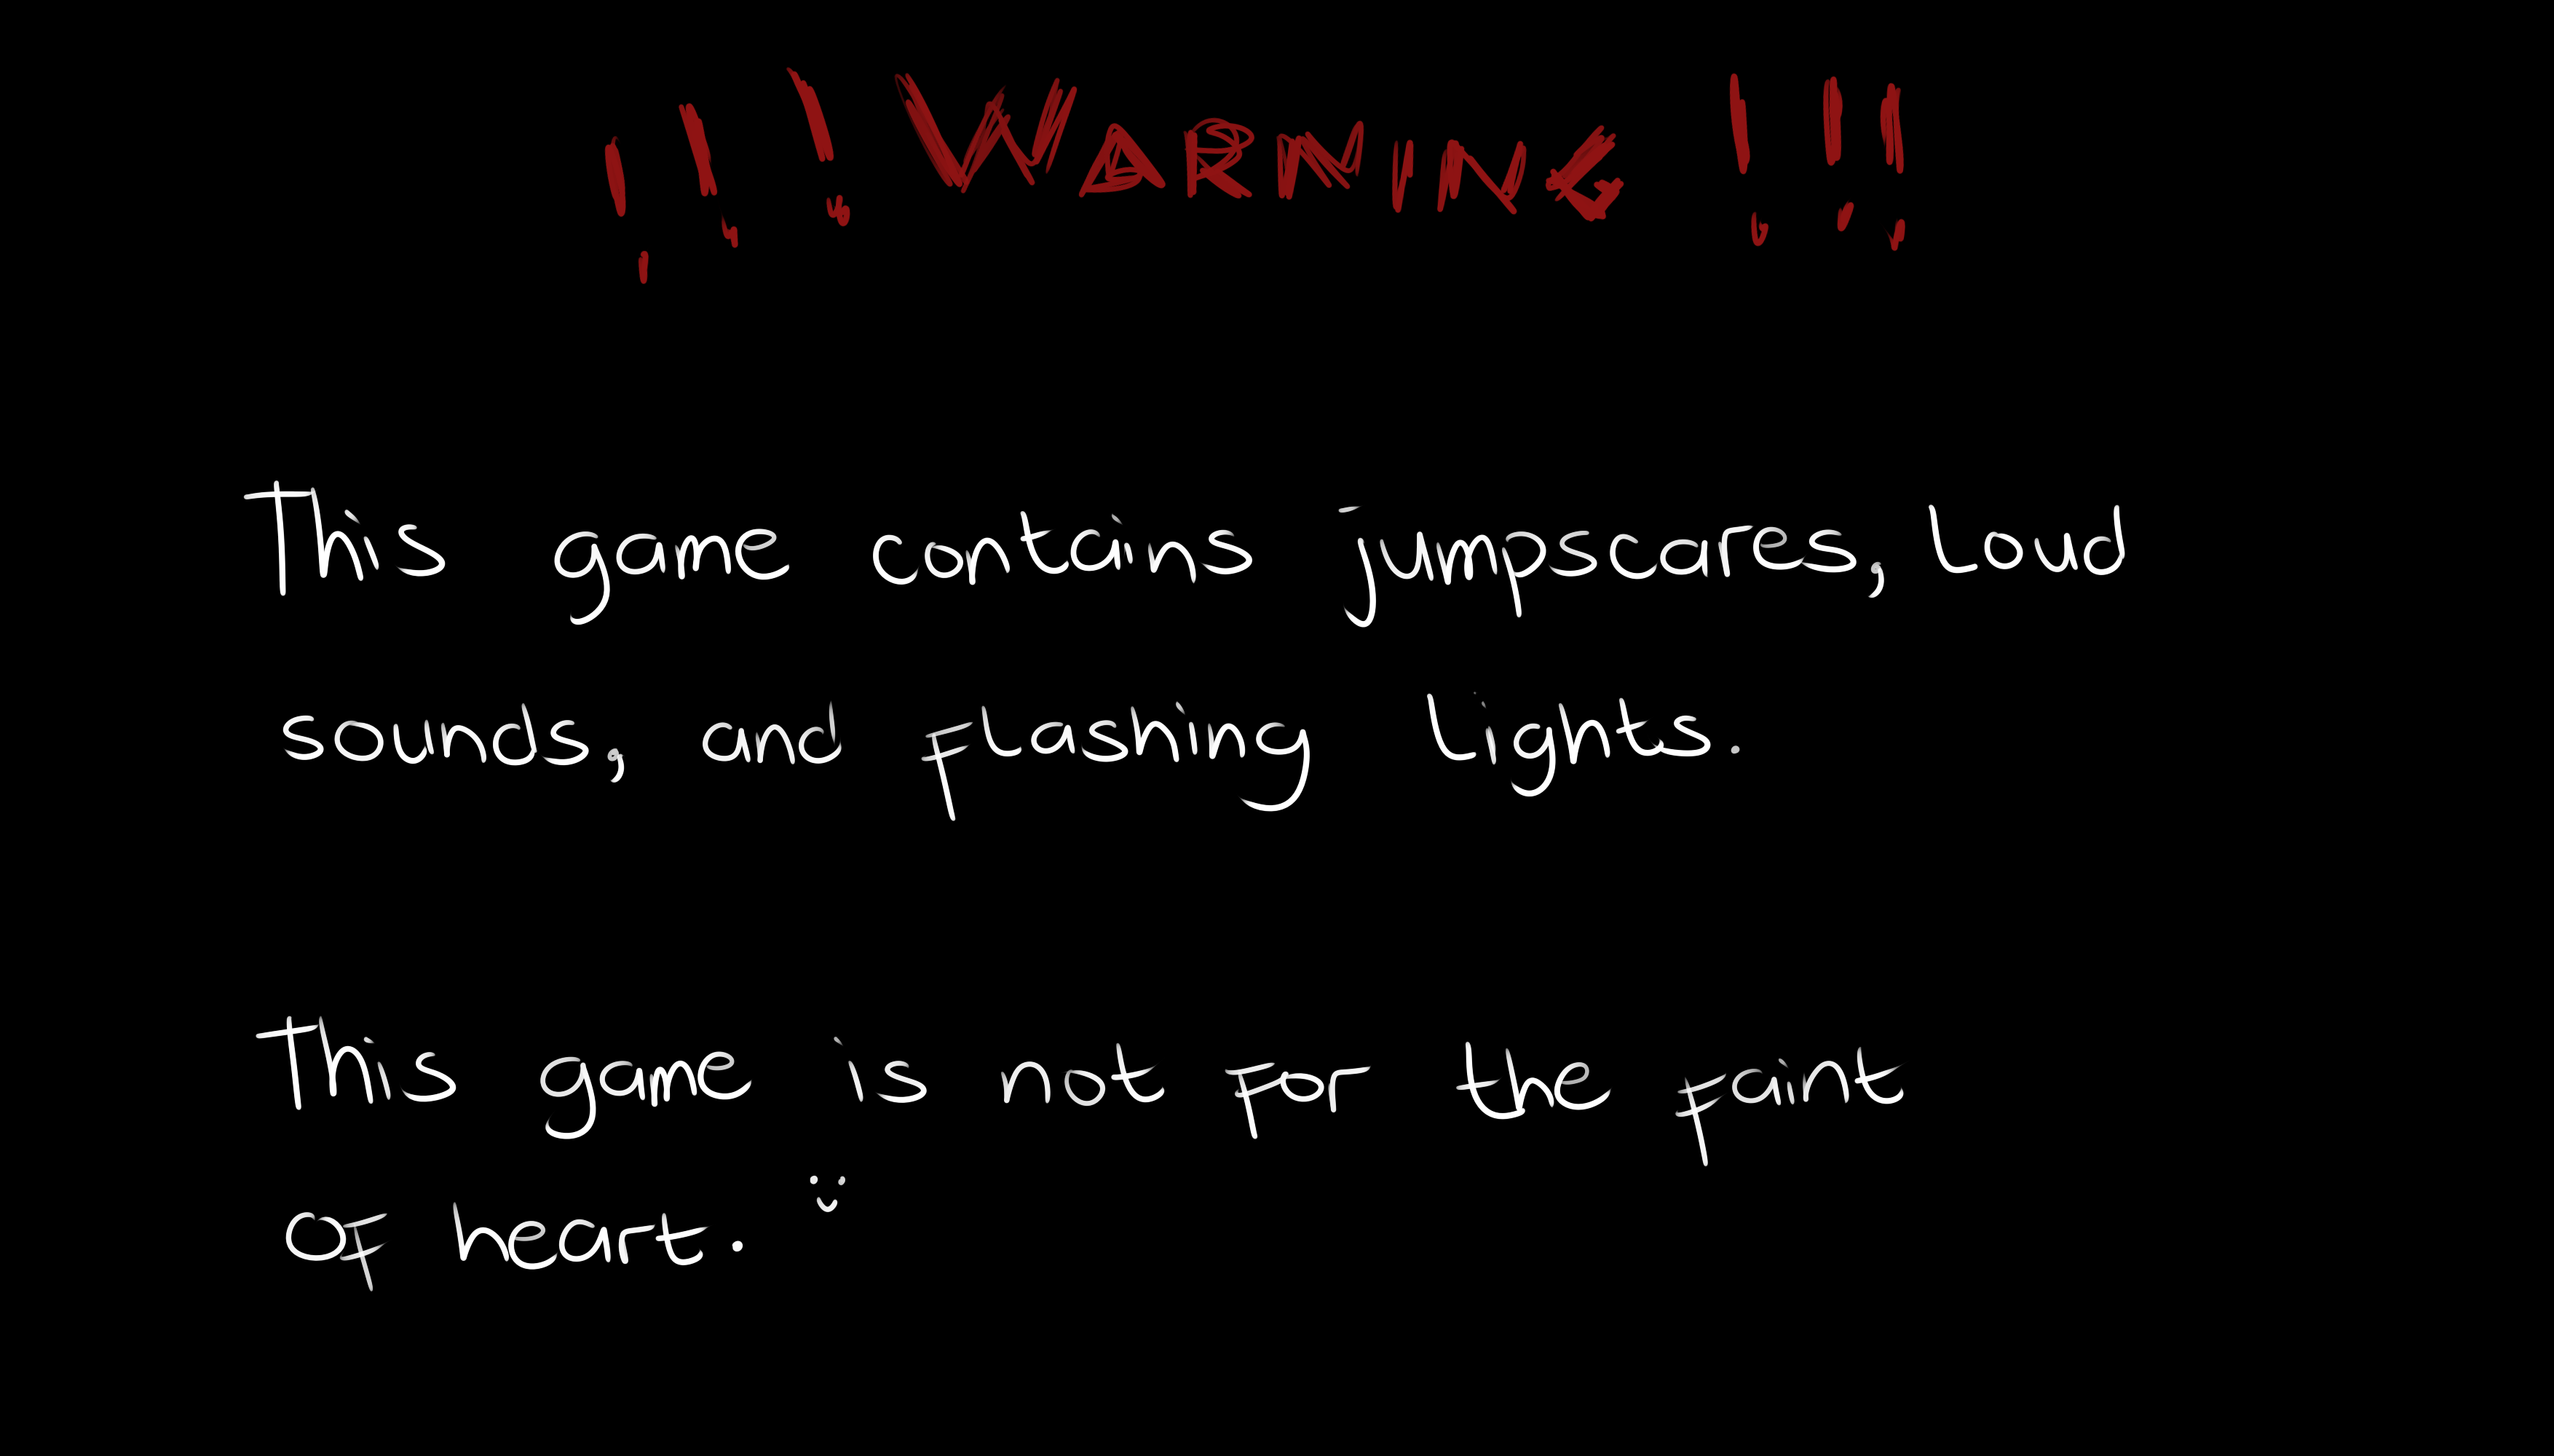 !!! WARNING !!!
This game contains jumpscares, Loud
sounds, and flashing lights.
This game is not for the faint
of heart. :)